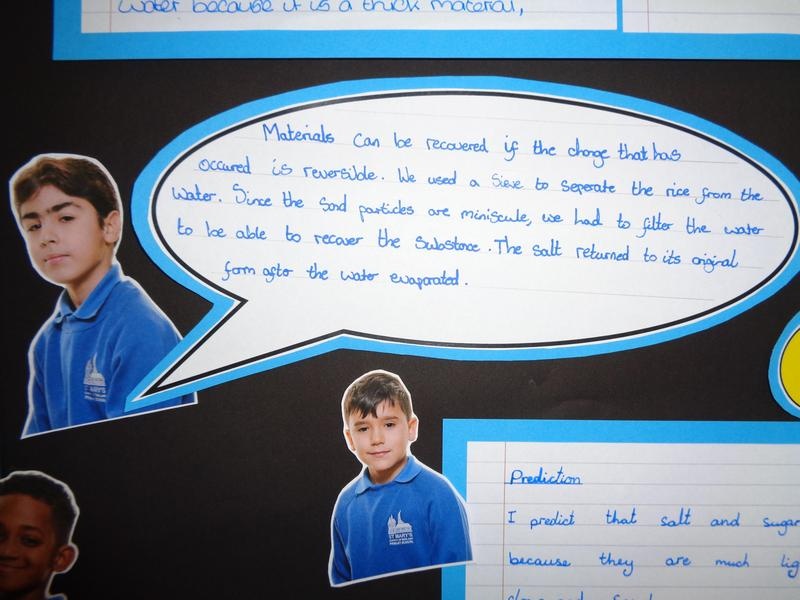 water because it is a thick material,
Materials can be recovered if the change that has
occured is reversible. We used a sieve to seperate the rice from the
water. Since the sand particles are miniscule, we had to filter the water
to be able to recover the substance. The salt returned to its original
form after the water evaporated.
ST MARY'S
ST MARY'S
PRIMARY SCHOOL
Prediction
I predict that salt and sugar
because they are much